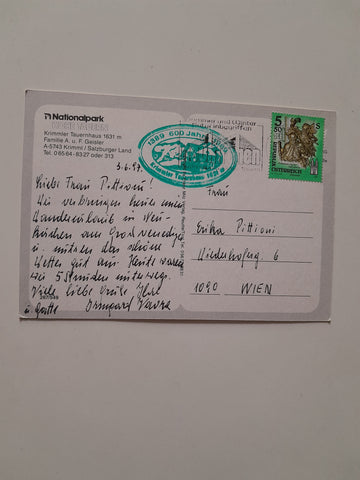 Nationalpark
HOHE TAUERN
Krimmler Tauernhaus 1631 m
Familie A. u. F. Geisler
A-5743 Krimml / Salzburger Land
Tel. 0 65 64 - 83 27 oder 313
3.6.97.
Liebe Frau Pittioni!
Wir verbringen heuer einen
Wanderurlaub in Neu-
kirchen am Großvenediger
u. nützen das schöne
Wetter gut aus. Heute waren
wir 5 Stunden unterwegs.
Viele liebe Grüße Ihre
Irmgard
u. Gatte
1389 600 Jahre
Sommer und Winter
5 50 S
REPUBLIK
ÖSTERREICH
Frau
Erika Pittioni
Wiederhoferg. 6
1090 WIEN